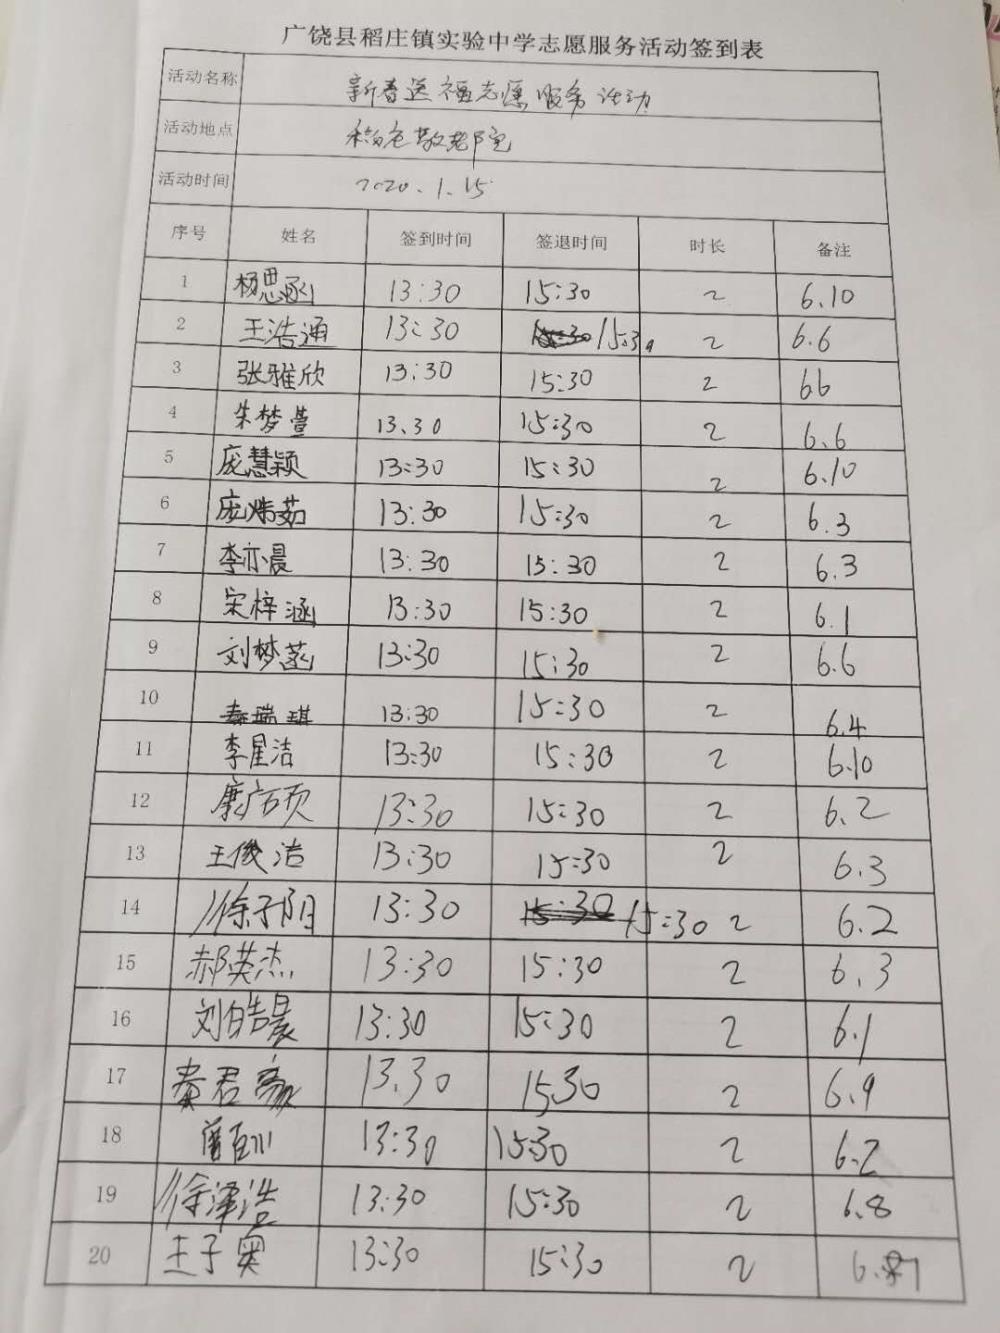 广饶县稻庄镇实验中学志愿服务活动签到表
活动名称 新春送福志愿服务活动
活动地点 稻庄敬老院
活动时间 2020.1.15
序号 姓名 签到时间 签退时间 时长 备注
1 杨思涵 13:30 15:30 2 6.10
2 王浩通 13:30 15:30 15:30 2 6.6
3 张雅欣 13:30 15:30 2 66
4 朱梦萱 13.30 15:30 2 6.6
5 庞慧颖 13:30 15:30 2 6.10
6 庞炜茹 13:30 15:30 2 6.3
7 李亦晨 13:30 15:30 2 6.3
8 宋梓涵 13:30 15:30 2 6.1
9 刘梦菡 13:30 15:30 2 6.6
10 秦瑞琪 13:30 15:30 2 6.4
11 李星洁 13:30 15:30 2 6.10
12 13:30 15:30 2 6.2
13 王俊洁 13:30 15:30 2 6.3
14 徐子阳 13:30 15:30 15:30 2 6.2
15 郝英杰 13:30 15:30 2 6.3
16 刘皓晨 13:30 15:30 2 6.1
17 秦君豪 13.30 15.30 2 6.9
18 13:30 15:30 2 6.2
19 徐泽浩 13:30 15:30 2 6.8
20 王子奥 13:30 15:30 2